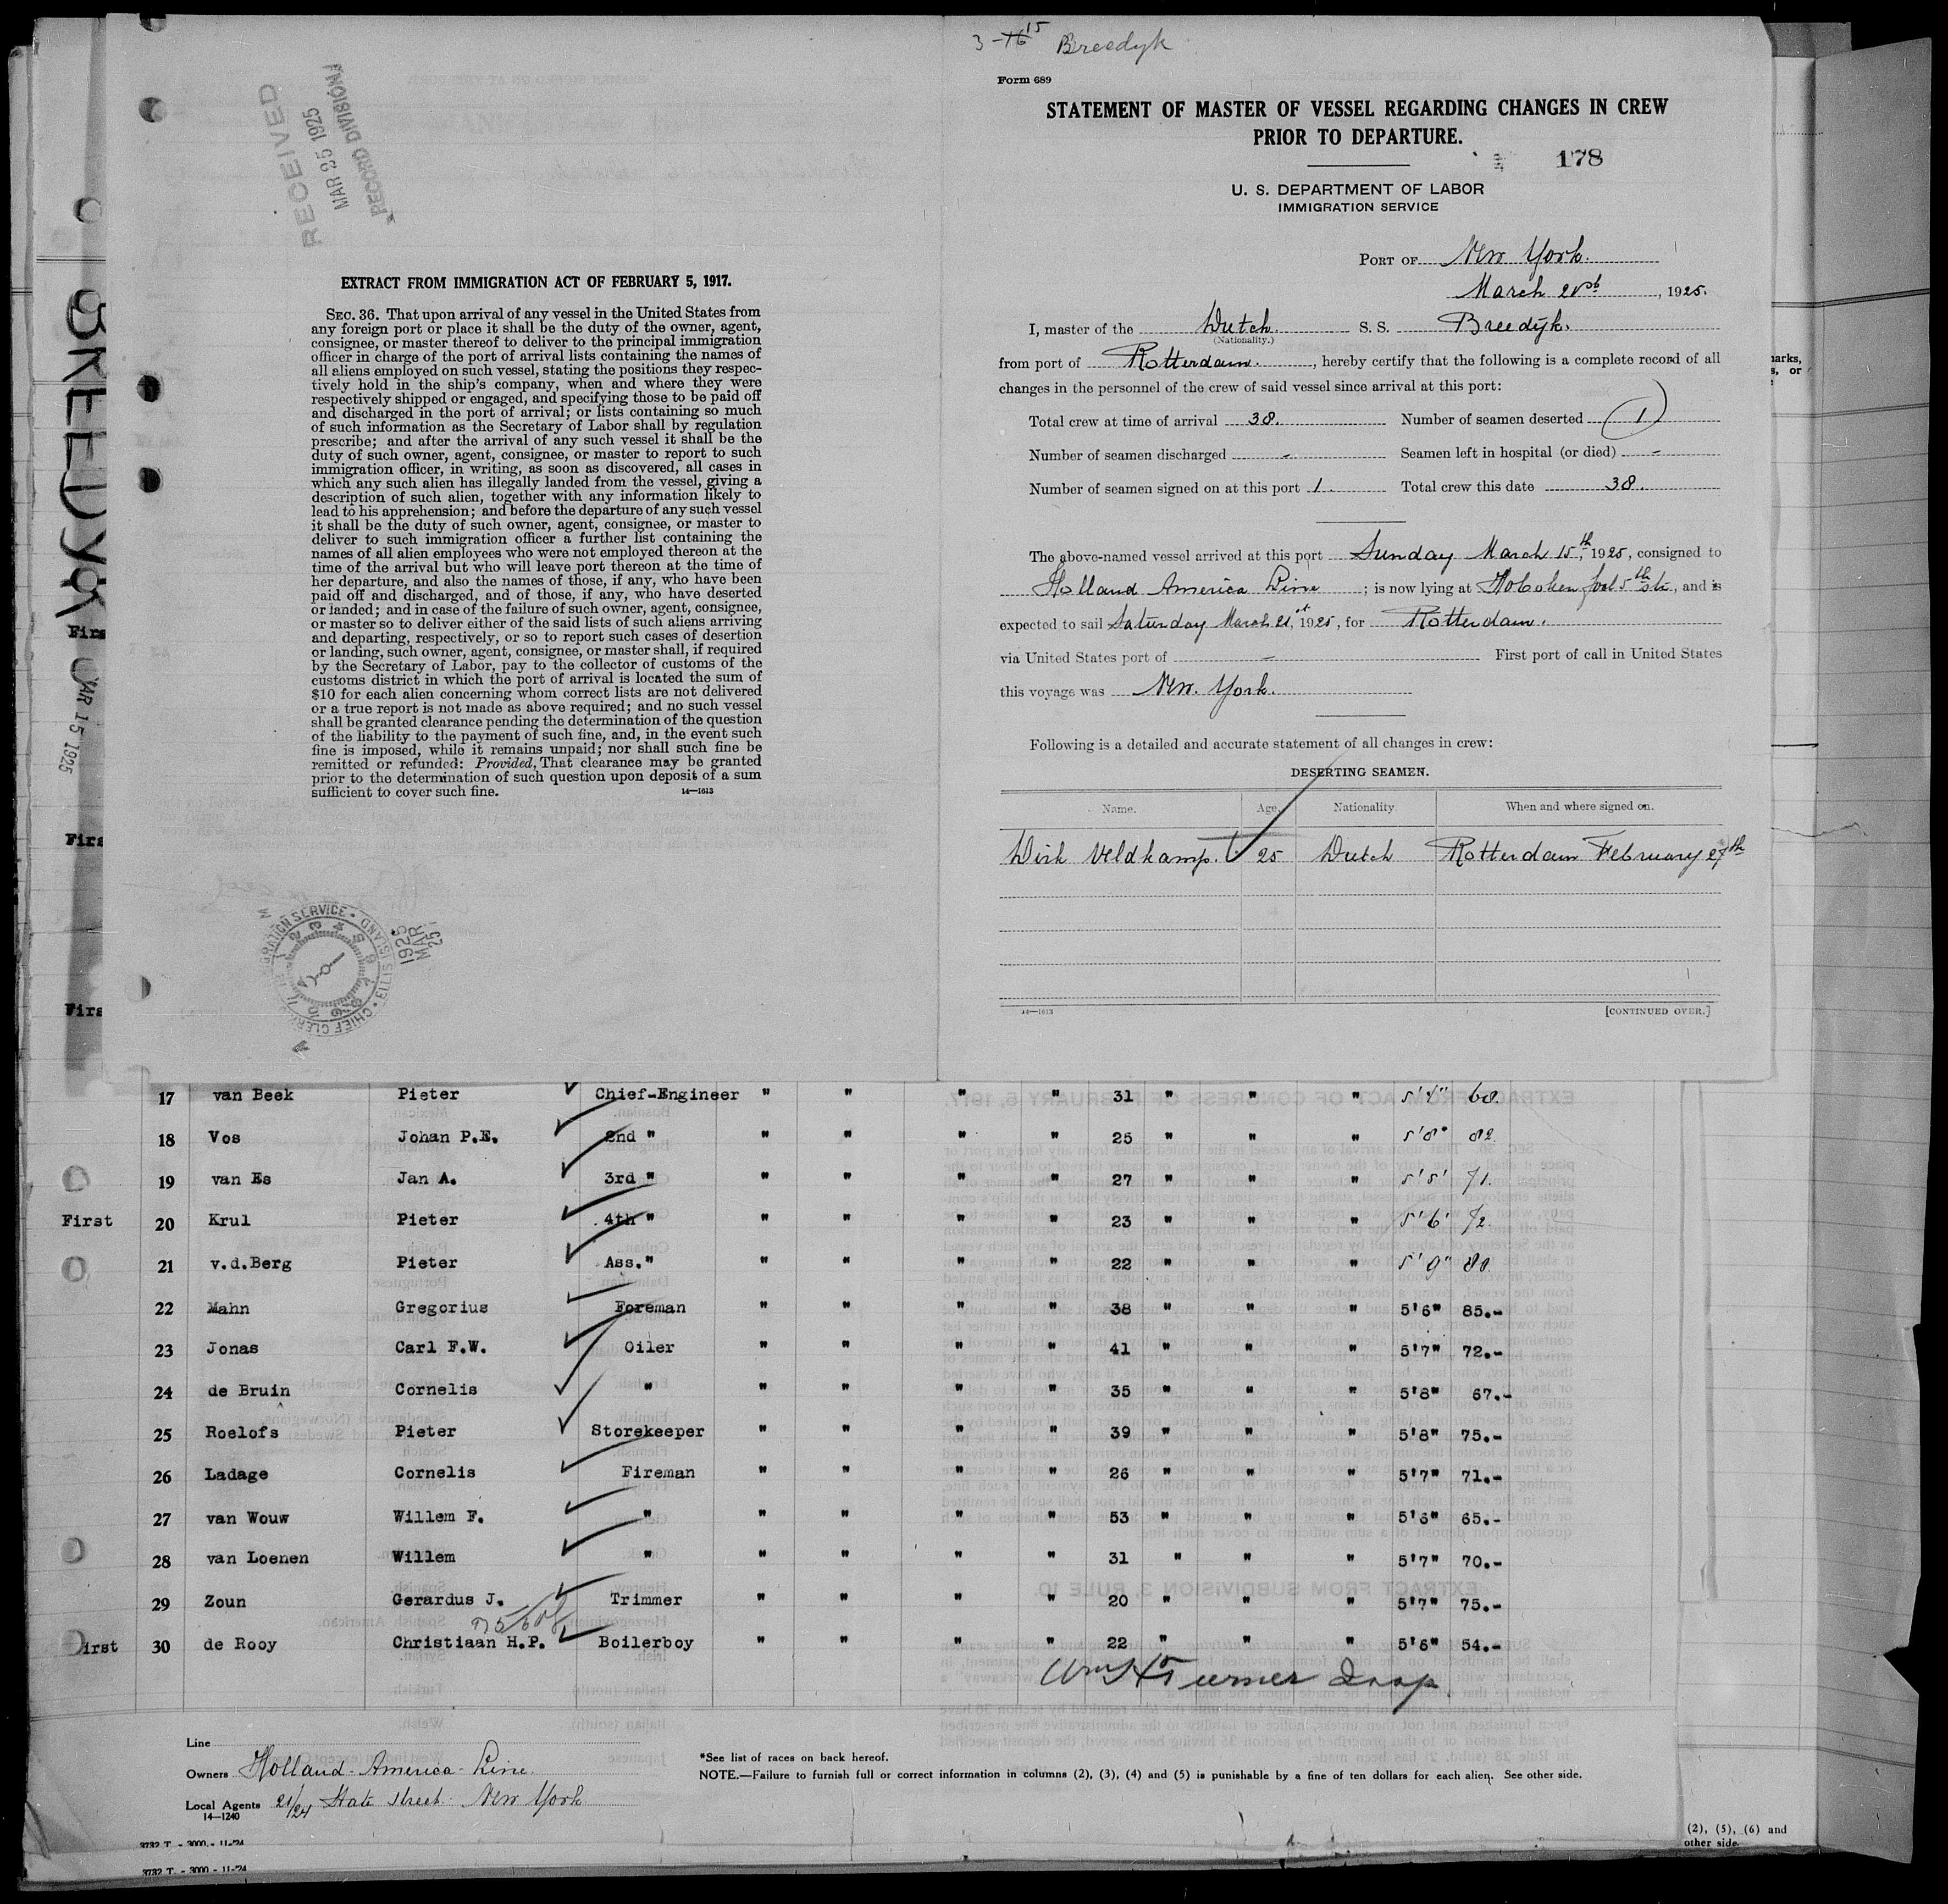 3-16 15 Breedyk
Form 689
STATEMENT OF MASTER OF VESSEL REGARDING CHANGES IN CREW
PRIOR TO DEPARTURE.
178
U. S. DEPARTMENT OF LABOR
IMMIGRATION SERVICE
PORT OF New York.
March 21st, 1925.
I, master of the Dutch. S. S. Breedijk.
(Nationality.)
from port of Rotterdam., hereby certify that the following is a complete record of all
changes in the personnel of the crew of said vessel since arrival at this port:
Total crew at time of arrival 38. Number of seamen deserted 1
Number of seamen discharged - Seamen left in hospital (or died) -
Number of seamen signed on at this port 1. Total crew this date 38.
The above-named vessel arrived at this port Sunday March 15th, 1925, consigned to
Holland America Line; is now lying at Hoboken foot 5th str., and is
expected to sail Saturday March 21st, 1925, for Rotterdam.
via United States port of - First port of call in United States
this voyage was New. York.
Following is a detailed and accurate statement of all changes in crew:
DESERTING SEAMEN.
Name. Age. Nationality. When and where signed on.
Dirk Veldkamp. 25 Dutch Rotterdam February 27th
14—1613 [CONTINUED OVER.]
RECEIVED
MAR 25 1925
RECORD DIVISION
EXTRACT FROM IMMIGRATION ACT OF FEBRUARY 5, 1917.
SEC. 36. That upon arrival of any vessel in the United States from
any foreign port or place it shall be the duty of the owner, agent,
consignee, or master thereof to deliver to the principal immigration
officer in charge of the port of arrival lists containing the names of
all aliens employed on such vessel, stating the positions they respec-
tively hold in the ship's company, when and where they were
respectively shipped or engaged, and specifying those to be paid off
and discharged in the port of arrival; or lists containing so much
of such information as the Secretary of Labor shall by regulation
prescribe; and after the arrival of any such vessel it shall be the
duty of such owner, agent, consignee, or master to report to such
immigration officer, in writing, as soon as discovered, all cases in
which any such alien has illegally landed from the vessel, giving a
description of such alien, together with any information likely to
lead to his apprehension; and before the departure of any such vessel
it shall be the duty of such owner, agent, consignee, or master to
deliver to such immigration officer a further list containing the
names of all alien employees who were not employed thereon at the
time of the arrival but who will leave port thereon at the time of
her departure, and also the names of those, if any, who have been
paid off and discharged, and of those, if any, who have deserted
or landed; and in case of the failure of such owner, agent, consignee,
or master so to deliver either of the said lists of such aliens arriving
and departing, respectively, or so to report such cases of desertion
or landing, such owner, agent, consignee, or master shall, if required
by the Secretary of Labor, pay to the collector of customs of the
customs district in which the port of arrival is located the sum of
$10 for each alien concerning whom correct lists are not delivered
or a true report is not made as above required; and no such vessel
shall be granted clearance pending the determination of the question
of the liability to the payment of such fine, and, in the event such
fine is imposed, while it remains unpaid; nor shall such fine be
remitted or refunded: Provided, That clearance may be granted
prior to the determination of such question upon deposit of a sum
sufficient to cover such fine.
14—1613
IMMIGRATION SERVICE · ELLIS ISLAND · CHIEF CLERK
1925 MAR 25
BREEDYK
MAR 15 1925
17 van Beek Pieter Chief-Engineer " " " " 31 " " " 5'4" 68.
18 Vos Johan P.E. 2nd " " " " " 25 " " " 5'8" 82.
19 van Es Jan A. 3rd " " " " " 27 " " " 5'5' 71.
First 20 Krul Pieter 4th " " " " " 23 " " " 5'6' 72.
21 v.d.Berg Pieter Ass." " " " " 22 " " " 5'9" 80.
22 Mahn Gregorius Foreman " " " " 38 " " " 5'6" 85.-
23 Jonas Carl F.W. Oiler " " " " 41 " " " 5'7" 72.-
24 de Bruin Cornelis " " " " " 35 " " " 5'8" 67.-
25 Roelofs Pieter Storekeeper " " " " 39 " " " 5'8" 75.-
26 Ladage Cornelis Fireman " " " " 26 " " " 5'7" 71.-
27 van Wouw Willem F. " " " " " 53 " " " 5'6" 65.-
28 van Loenen Willem " " " " " 31 " " " 5'7" 70.-
29 Zoun Gerardus J. Trimmer " " " " 20 " " " 5'7" 75.-
First 30 de Rooy Christiaan H.P. Boilerboy " " " " 22 " " " 5'6" 54.-
Turner Insp.
Line
Owners Holland-America-Line.
Local Agents 21/24 State Street New York
14—1240
*See list of races on back hereof.
NOTE.—Failure to furnish full or correct information in columns (2), (3), (4) and (5) is punishable by a fine of ten dollars for each alien. See other side.
3732 T. - 3000 - 11-'24
3732 T. - 3000 - 11-'24
(2), (5), (6) and
other side.